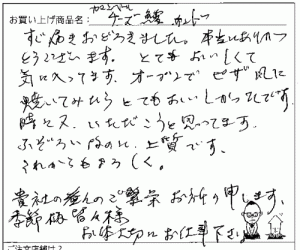 お買い上げ商品名：カマンベール
チーズ鱈
すぐ届きおどろきました。本当にありがとう
とうございます。とてもおいしくて
気に入ってます。オーブンで ピザ風に
焼いてみたら とてもおいしかったです。
時々又、いただこうと思ってます。
ふぞろいなのに、上質です。
それからもよろしく。
貴社の益々のご繁栄 お祈り申します。
季節柄 皆々様
お体大切にお仕事下さい
ご注文店舗は？